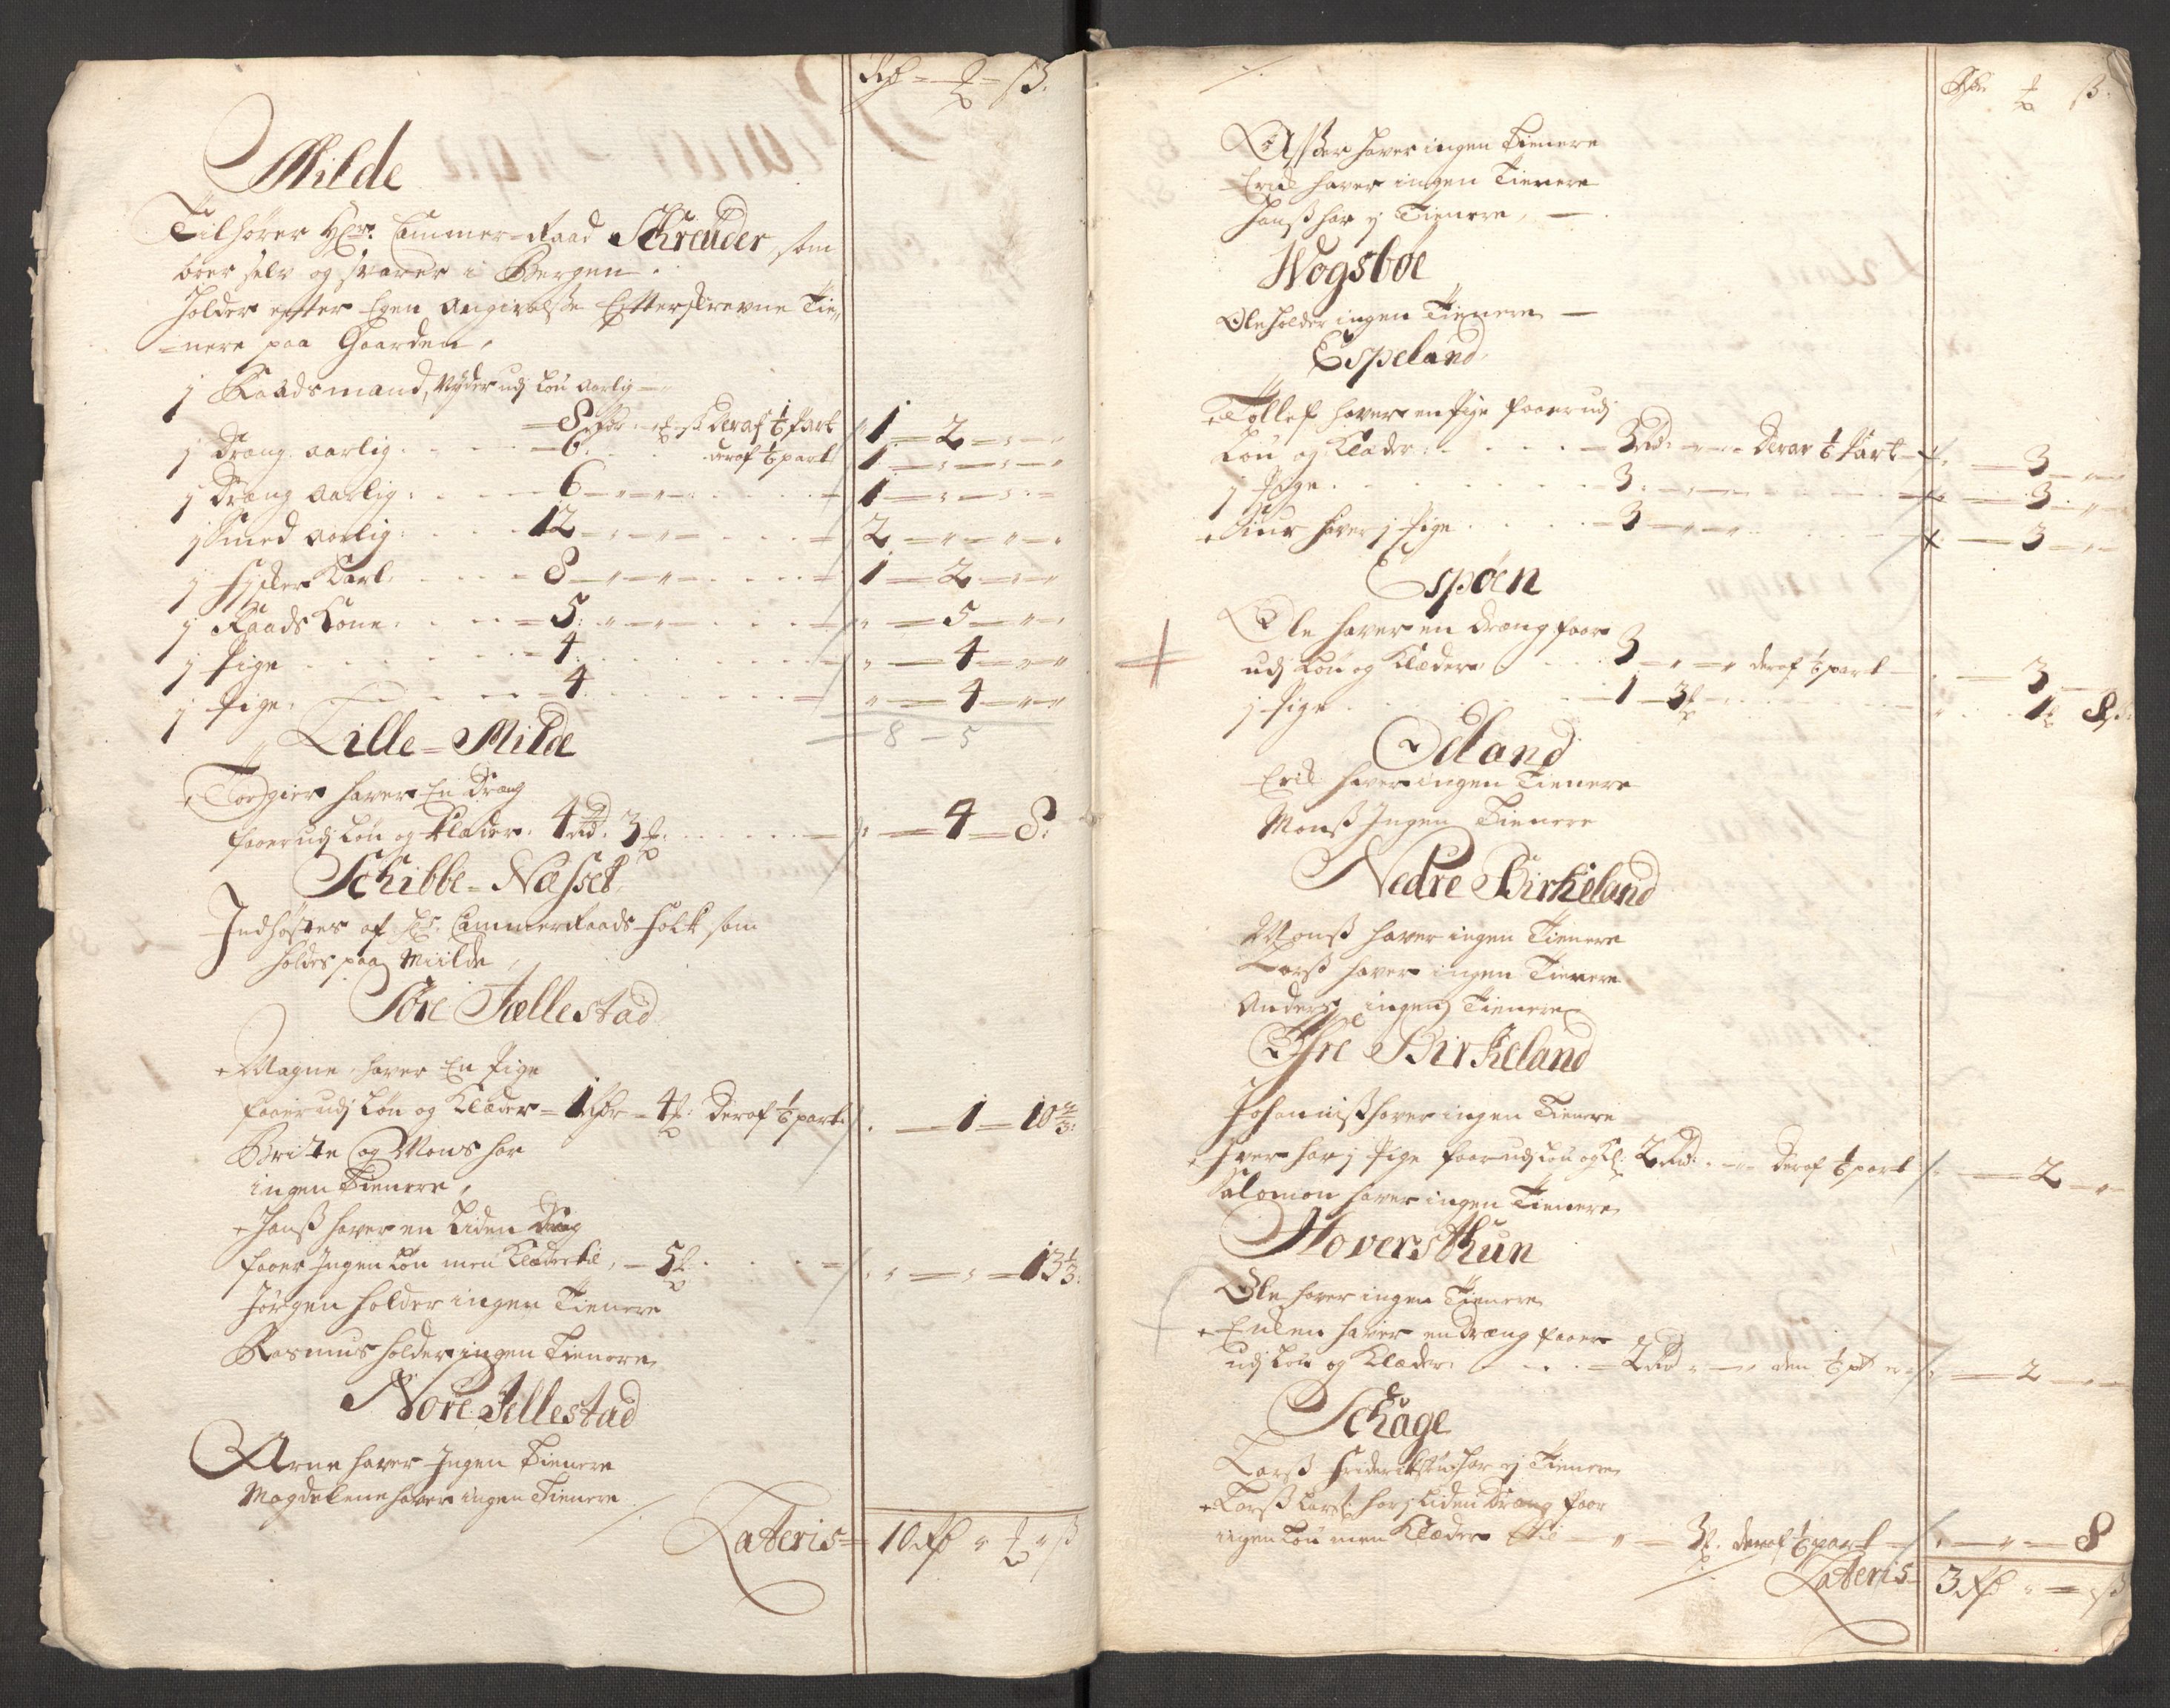 Rdr - ℔ - ß.
Milde
Tilhører Hr. Cammer-Raad Schreuder, som
boer selv og svarer i Bergen.
Holder efter Egen Angivelsse Efterskrevne Tie„
-nere paa Gaarden,
j Raadsmand, Nyder udj Løn aarlig -
8 Rdr Deraf 1/6 Part 1 - 2 - „
j dreng aarlig 6 deraf 1/6 part 1 - „ - „
j dreng Aarlig 6 - „ - „ 1 - „ - „
j Smed aarlig 12 - „ - „ 2 - „ - „
j Fisker Karl 8 - „ - „ 1 - 2 - „
j Raads Kone 5 - „ - „ „ - 5 - „
j Pige 4 „ - 4 - „
j Pige 4 „ - 4 - „
8 - 5
Lille-Milde
+ Torgier haver En dreng
faaer udj Løn og Klæder 4 Rd. 3 „ - 4 - 8.
Schibbe-Næsset
Indhøstes af Hr. CammerRaads Folk som
holdes paa Miilde,
Søre Jællestad
+ Magne haver En Pige
faaer udj Løn og Klæder - 1 Rdr - 4 Deraf 1/6 part - 1 - 10 2/3
Brite og Mons har
ingen tienere,
+ Hanß haver en Liden dreng
faaer Ingen Løn men Klæder til, - 5 „ - „ - 13 1/3
Jørgen holder ingen Tienere
Rasmus holder ingen Tienere
Nore Jellestad
Arne haver Ingen tienere
Magdelene haver ingen Tienere
Lateris - 10 Rdr „ „ ß
Rdr ß.
Asser haver ingen tienere
Erik haver ingen Tienere
Hanß har ej Tienere, -
Wogsbøe
Ole holder ingen Tienere -
Espeland
+ Tollef haver en Pige faaer udj
Løn og Klæder 3 Rd. Deraf 1/6 Part - 3 - „
j Pige 3 - 3 - „
+ Siur haver j Pige 3 - „ - „ - 3 - „
Espøen
Ole haver en dreng faar
udj Løn og Klæder 3 - „ - „ deraf 1/6 part - 3 -
j Pige 1 - 3 1 8
Ødland
Erik haver ingen Tienere
Monß Ingen Tienere
Nedre Birkeland
Monß haver ingen Tienere
Larß haver ingen Tienere
Anders ingen Tienere
Øfre Birkeland
Johanniß haver ingen Tienere
+ Iver har j Pige faar udj Løn og Kl: 2 Rd. - „ - Deraf 1/6 part - 2 - „
Salomon haver ingen Tienere
Hoversthun
Ole haver ingen Tienere
+ Enken haver en dreng faaer
udj Løn og Klæder 2 Rd - „ den 1/6 pt er - 2 -
Schage
Larß Friderikßen har ej Tienere
+ Larß Larß: har j liden Dreng faar
ingen Løn men Klæder til - „ - 3 deraf 1/6 part - „ - 8
Lateris - 3 Rdr „ - „ ß